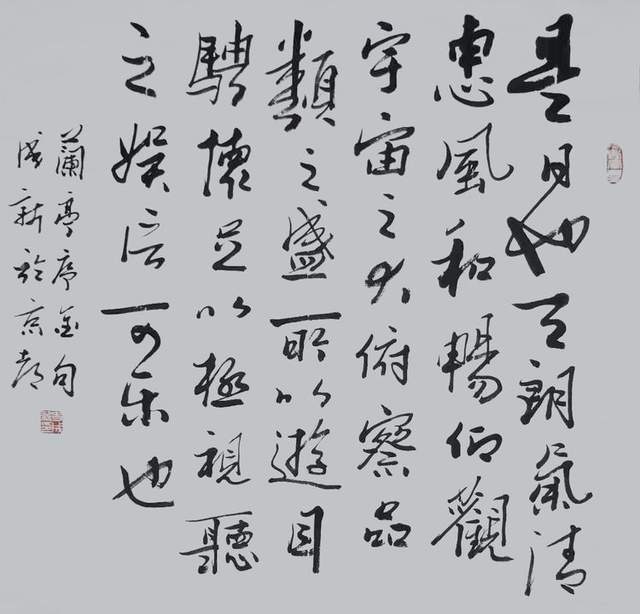 是日也天朗氣清
惠風和暢仰觀
宇宙之大俯察品
類之盛所以遊目
騁懷足以極視聽
之娛信可樂也
蘭亭序金句
成新於京都